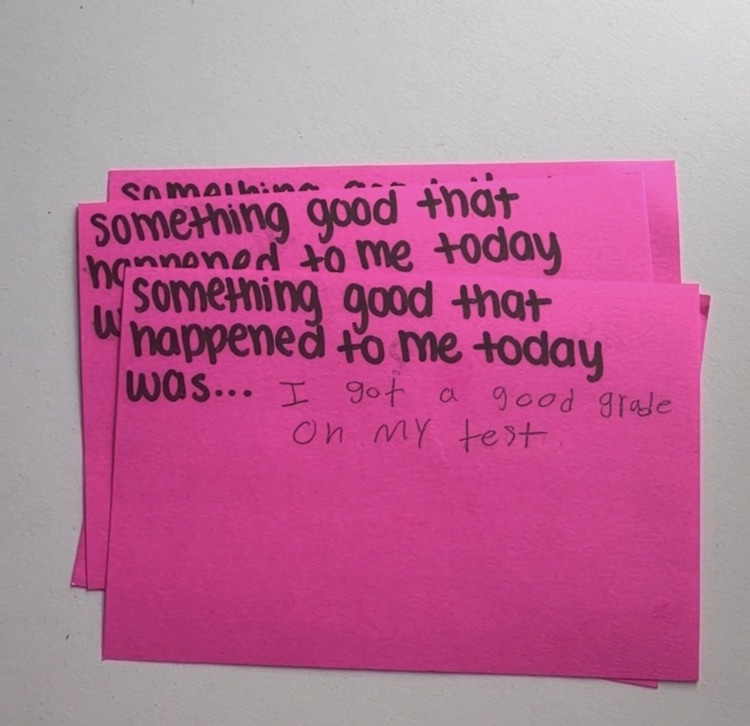 something
something good that
happened to me today
something good that
happened to me today
was... I got a good grade
on my test.